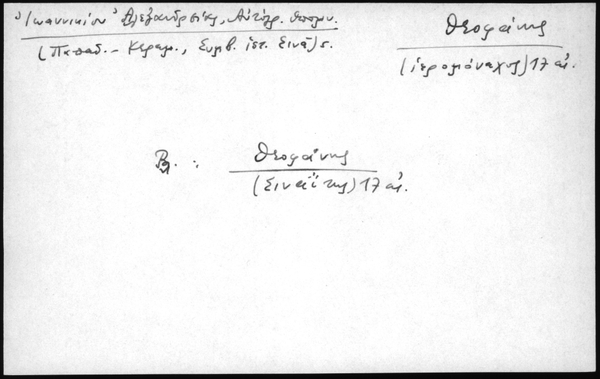 Ἰωαννικίου Ἀλεξανδρείας, Αὐτόγρ. ὑπομν.
(Παπαδ. - Κεραμ., Συμβ. ἱστ. Σινᾶ) ς.
Θεοφάνης
(ἱερομόναχος) 17 αἰ.
Βλ. :
Θεοφάνης
(Σιναΐτης) 17 αἰ.